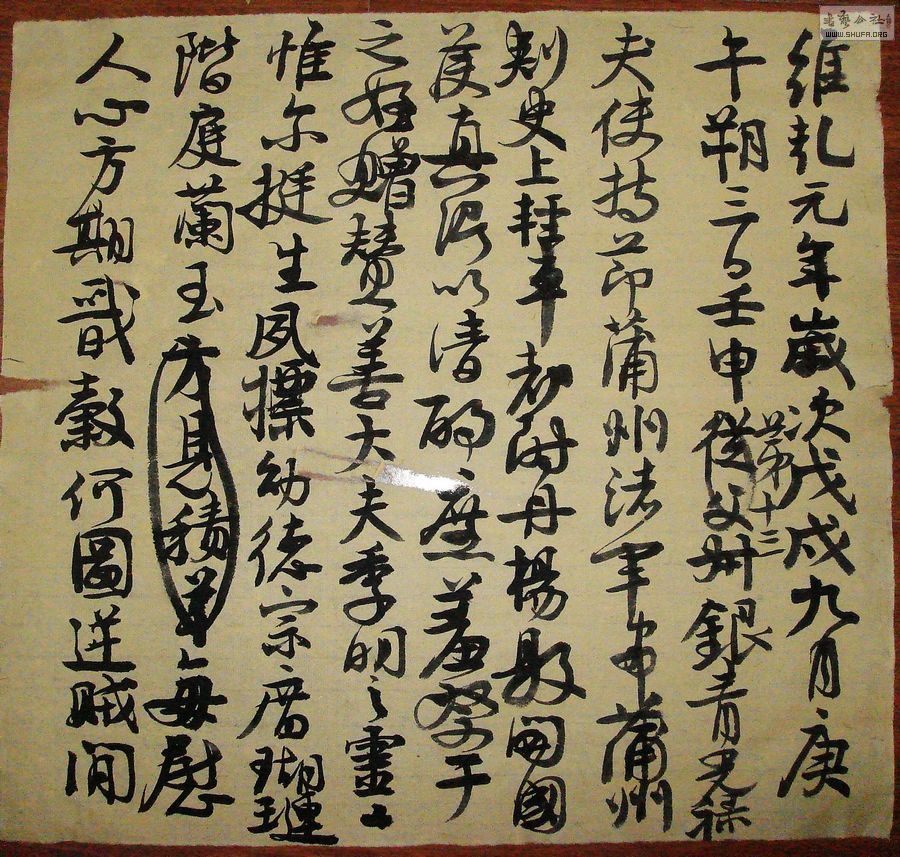 維乾元年歲次戊戌九月庚
午朔三日壬申從父叔銀青光祿
第十三
夫使持節蒲州諸軍事蒲州
刺史上輕車都尉丹楊縣開國
侯真卿以清酌庶羞祭于
亡姪贈贊善大夫季明之靈曰
惟爾挺生夙標幼德宗廟瑚璉
階庭蘭玉方見積善每慰
人心方期戩穀何圖逆賊間
書藝公社
WWW.SHUFA.ORG